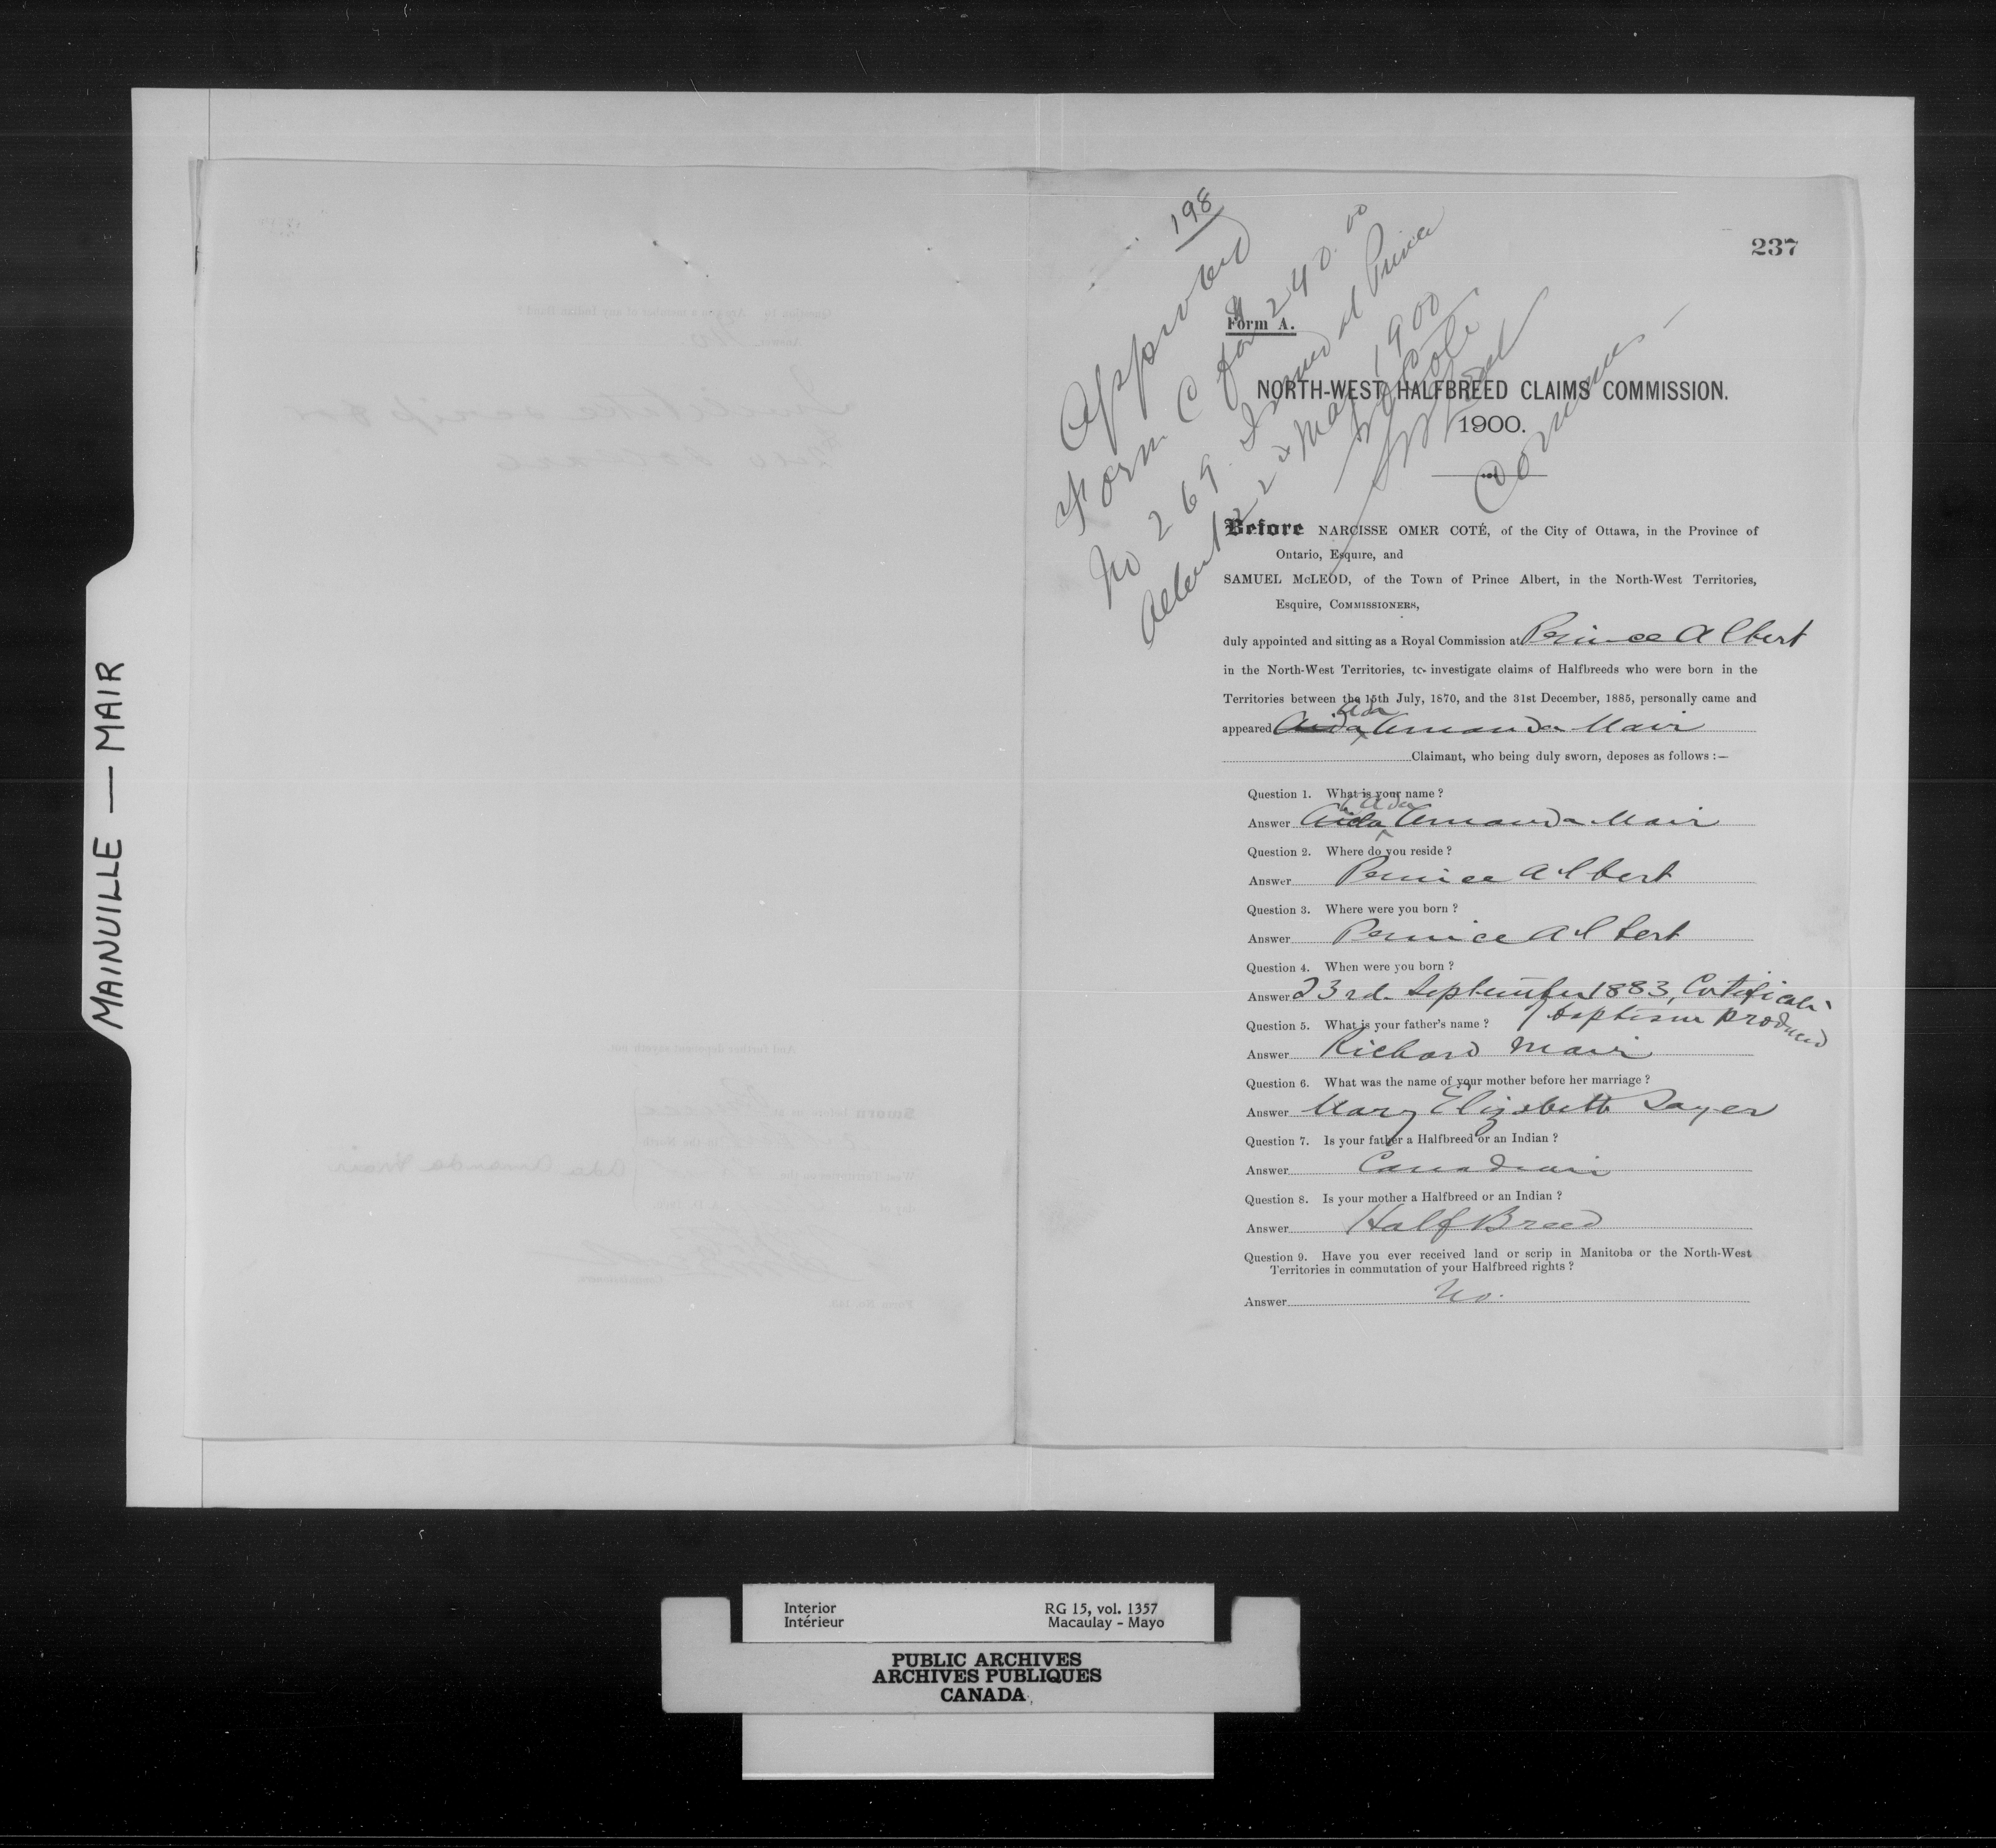 MAINVILLE — MAIR
198
237
Approved
Form C for $240.00
No 269 Issued at Prince
Albert 22 May 1900
N O Coté
S McLeod
Comrs
Form A.
NORTH-WEST HALFBREED CLAIMS COMMISSION.
1900.
Before NARCISSE OMER COTÉ, of the City of Ottawa, in the Province of
Ontario, Esquire, and
SAMUEL McLEOD, of the Town of Prince Albert, in the North-West Territories,
Esquire, COMMISSIONERS,
duly appointed and sitting as a Royal Commission at Prince Albert
in the North-West Territories, to investigate claims of Halfbreeds who were born in the
Territories between the 15th July, 1870, and the 31st December, 1885, personally came and
Ada
appeared Aida Amanda Mair
Claimant, who being duly sworn, deposes as follows :—
Question 1. What is your name ?
Ada
Answer Aida Amanda Mair
Question 2. Where do you reside ?
Answer Prince Albert
Question 3. Where were you born ?
Answer Prince Albert
Question 4. When were you born ?
Answer 23rd September 1883, Certificate
of baptism produced
Question 5. What is your father's name ?
Answer Richard Mair
Question 6. What was the name of your mother before her marriage ?
Answer Mary Elizabeth Sayer
Question 7. Is your father a Halfbreed or an Indian ?
Answer Canadian
Question 8. Is your mother a Halfbreed or an Indian ?
Answer Half Breed
Question 9. Have you ever received land or scrip in Manitoba or the North-West
Territories in commutation of your Halfbreed rights ?
Answer No.
Interior
Intérieur
RG 15, vol. 1357
Macaulay - Mayo
PUBLIC ARCHIVES
ARCHIVES PUBLIQUES
CANADA